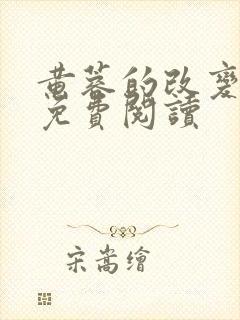 黄蓉的改變
免費閱讀
宋嵩繪